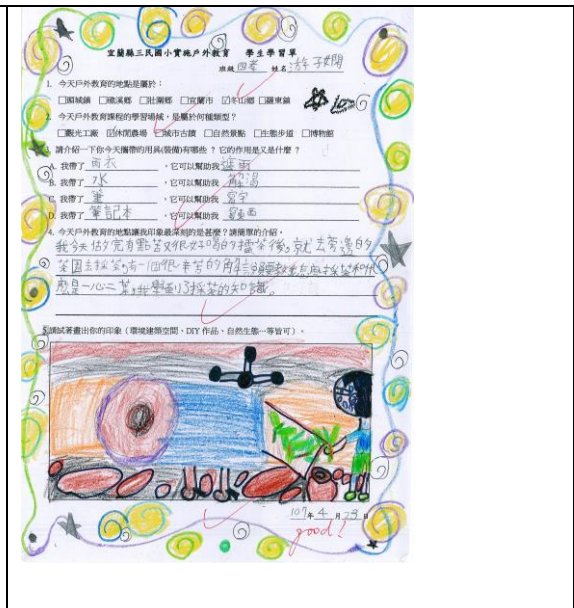 宜蘭縣三民國小實施戶外教育 學生學習單
班級 四孝 姓名 游子嫻
1. 今天戶外教育的地點是屬於：
□頭城鎮 □礁溪鄉 □壯圍鄉 □宜蘭市 ☑冬山鄉 □羅東鎮
2. 今天戶外教育課程的學習場域，是屬於何種類型？
□觀光工廠 ☑休閒農場 □城市古蹟 □自然景點 □生態步道 □博物館
3. 請介紹一下你今天攜帶的用具(裝備)有哪些？它的作用是又是什麼？
A. 我帶了 雨衣 ，它可以幫助我 遮雨
B. 我帶了 水 ，它可以幫助我 解渴
C. 我帶了 筆 ，它可以幫助我 寫字
D. 我帶了 筆記本 ，它可以幫助我 寫東西
4. 今天戶外教育的地點讓我印象最深刻的是甚麼？請簡單的介紹。
我今天估完有點苦又很好喝的擂茶後，就去旁邊的
茶園去採茶，有一個很辛苦的解說
麼是一心二葉，我學到了採茶的知識。
5.請試著畫出你的印象（環境建築空間、DIY 作品、自然生態…等皆可）。
107年 4 月 23 日
good!